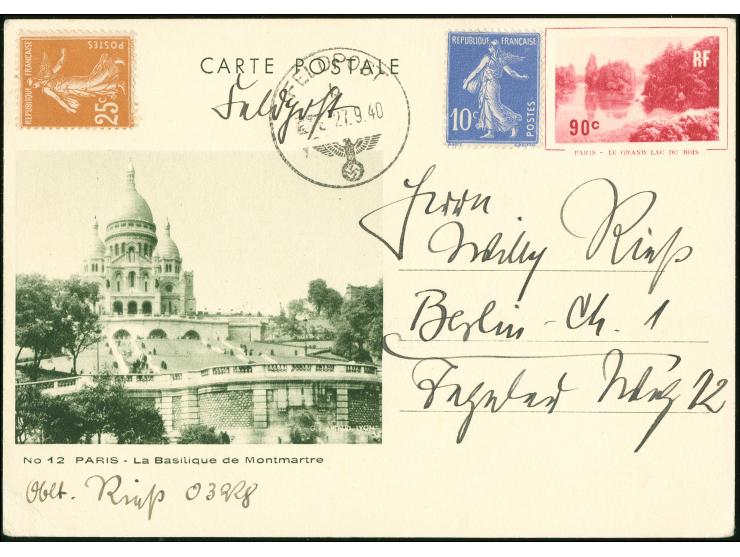 CARTE POSTALE
Feldpost
FELDPOST
27.9.40
REPUBLIQUE FRANÇAISE
POSTES
25c
REPUBLIQUE FRANÇAISE
10c
POSTES
RF
90c
PARIS - LE GRAND LAC DU BOIS
Herrn
Willy Rieß
Berlin - Ch. 1
Tegeler Weg 12
LYON
No 12 PARIS - La Basilique de Montmartre
Oblt. Rieß 03928